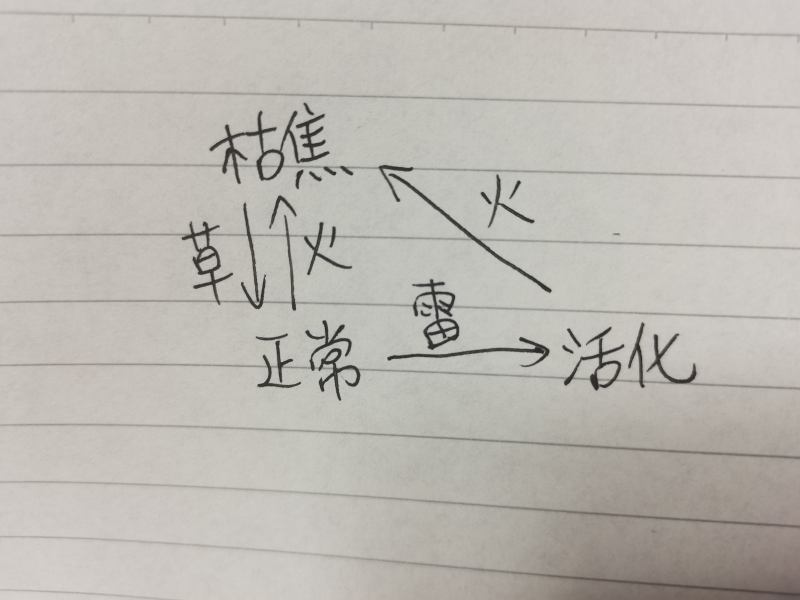 枯焦
火
草
火
雷
正常
活化